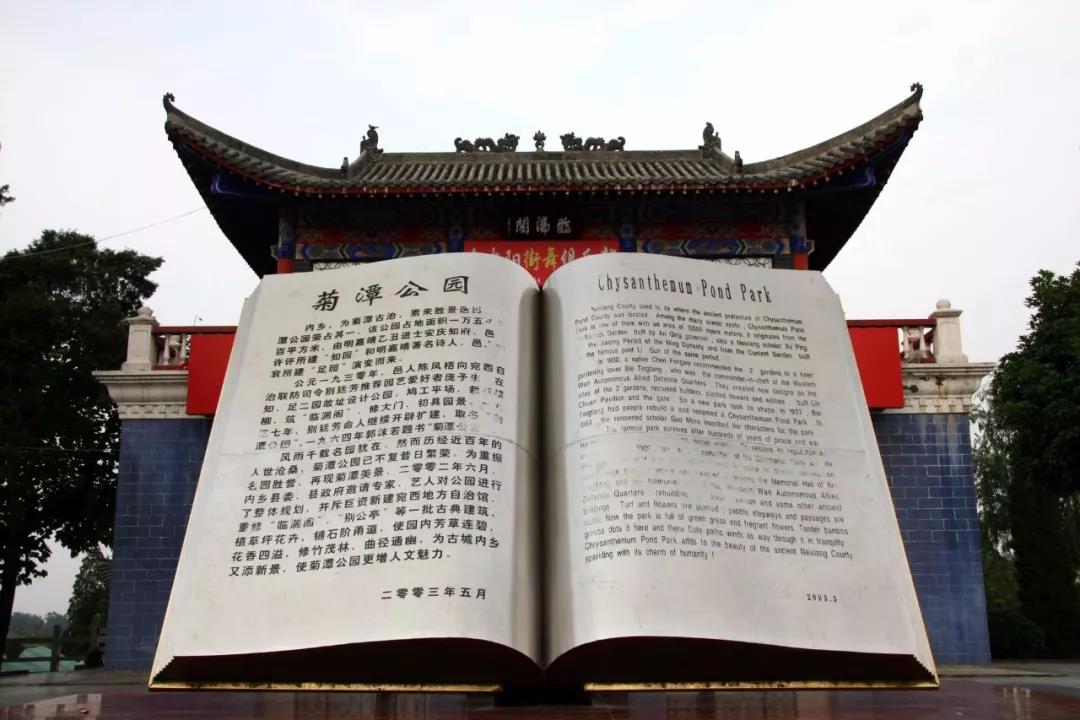 臨湍閣
衔舞俱乐部
菊潭公园
内乡，为菊潭古治，素来胜景迭出，
潭公园荣占其一。该公园占地面积一万五千
百平方米，由明嘉靖乙丑进士安庆知府、邑
许评所建“知园”和明嘉靖著名诗人、邑
衮所建“足园”演变而来。
公元一九三零年，邑人陈凤梧向宛西自
治联防司令别廷芳推荐园艺爱好者庞子生，在
知、足二园故址设计公园，鸠工平场，
柳，筑“临湍阁”，修大门，初具园景。
二七年，别廷芳命人继续开辟扩建，取名
潭公园”，一九六四年郭沫若题书“菊潭公
风雨千载名园犹在，然而历经近百年的
人世沧桑，菊潭公园已不复昔日繁荣，为重振
名园胜誉，再现菊潭美景，二零零二年六月，
内乡县委、县政府邀请专家、艺人对公园进行
了整体规划，并斥巨资新建宛西地方自治馆，
重修“临湍阁”、“别公亭”等一批古典建筑，
植草坪花卉，铺石阶甬道，使园内芳草连碧，
花香四溢，修竹茂林，曲径通幽，为古城内乡
又添新景，使菊潭公园更增人文魅力。
二零零三年五月
Chysanthemum Pond Park
Neixiang County used to be where the ancient prefecture of Chysanthemum
Pond County was located. Among the many scenic spots, Chysanthemum Pond
Park is one of them with an area of 15500 square meters. It originates from the
Gardens Garden built by An Qing governor, also a Neixiang scholar Xu Ping
the Jiaqing Period of the Ming Dynasty and from the Content Garden built
the famous poet Li Gun of the same period.
In 1930, a native Chen Fengwu recommended the 2 gardens to a keen
gardening lover Bie Tingfang, who was the commander-in-cheif of the Western
Wan Autonomous Allied Defence Quarters. They created new designs on the
sites of the 2 gardens, recruied builders, planted flowers and willows, built Lin
Chuan Pavilion and the gate. So a new park took its shape. In 1937, Bie
Tingfang had people rebuild a and renamed it Chysanthemum Pond Park. In
1964, the renowned scholar Guo Moro inscribed the characters for the park.
The famous park survives after hundreds of years of peace and war
To restore its reputation
2002 committee of the Communist Party and the
the Memorial Hall of
the Western Wan Autonomous Allied
Defence Quarters, rebuilding Pavilion and some other ancient
buildings. Turf and flowers are planted; pebble stepways and passages are
Now the park is full of green grass and fregrant flowers. Tender bamboo
groves dots it here and there. Cute paths winds its way through it in tranquility.
Chrysanthemum Pond Park adds to the beauty of the ancient Neixiang County
sparkling with its charm of humanity!
2003.5